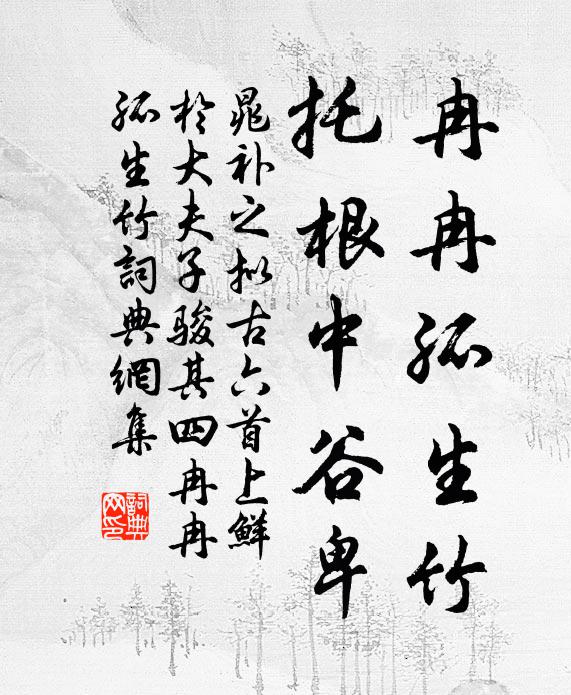 冉冉孤生竹
托根中谷卑
晁补之拟古六首上鲜
於大夫子骏其四冉冉
孤生竹詞典網集
詞典
网印